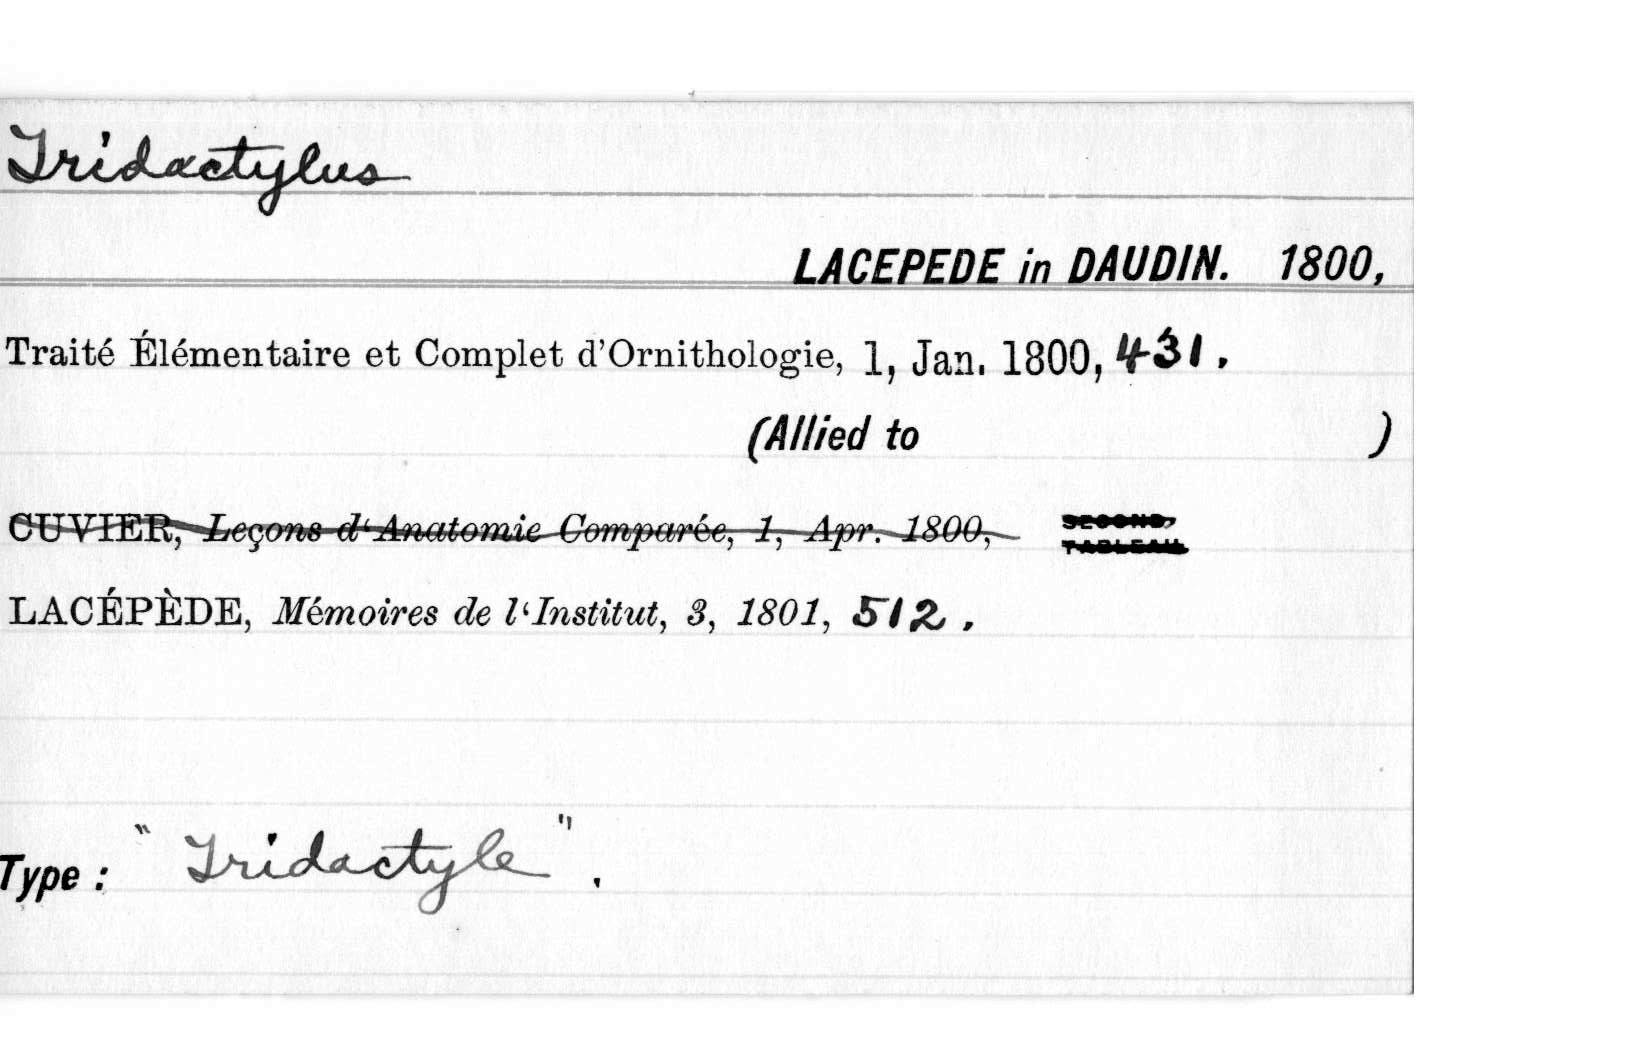 Tridactylus
LACEPEDE in DAUDIN. 1800,
Traité Élémentaire et Complet d'Ornithologie, 1, Jan. 1800, 431.
(Allied to )
CUVIER, Leçons d‘Anatomie Comparée, 1, Apr. 1800, SECOND,
TABLEAU.
LACÉPÈDE, Mémoires de l‘Institut, 3, 1801, 512.
Type: "Tridactyle".